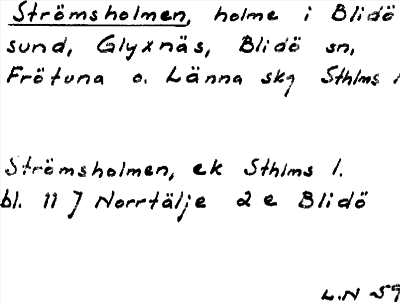 Strömsholmen, holme i Blidö
sund, Glyxnäs, Blidö sn,
Frötuna o. Länna skg Sthlms l
Strömsholmen, ek Sthlms l.
bl. 11 J Norrtälje 2 e Blidö
L.N 59